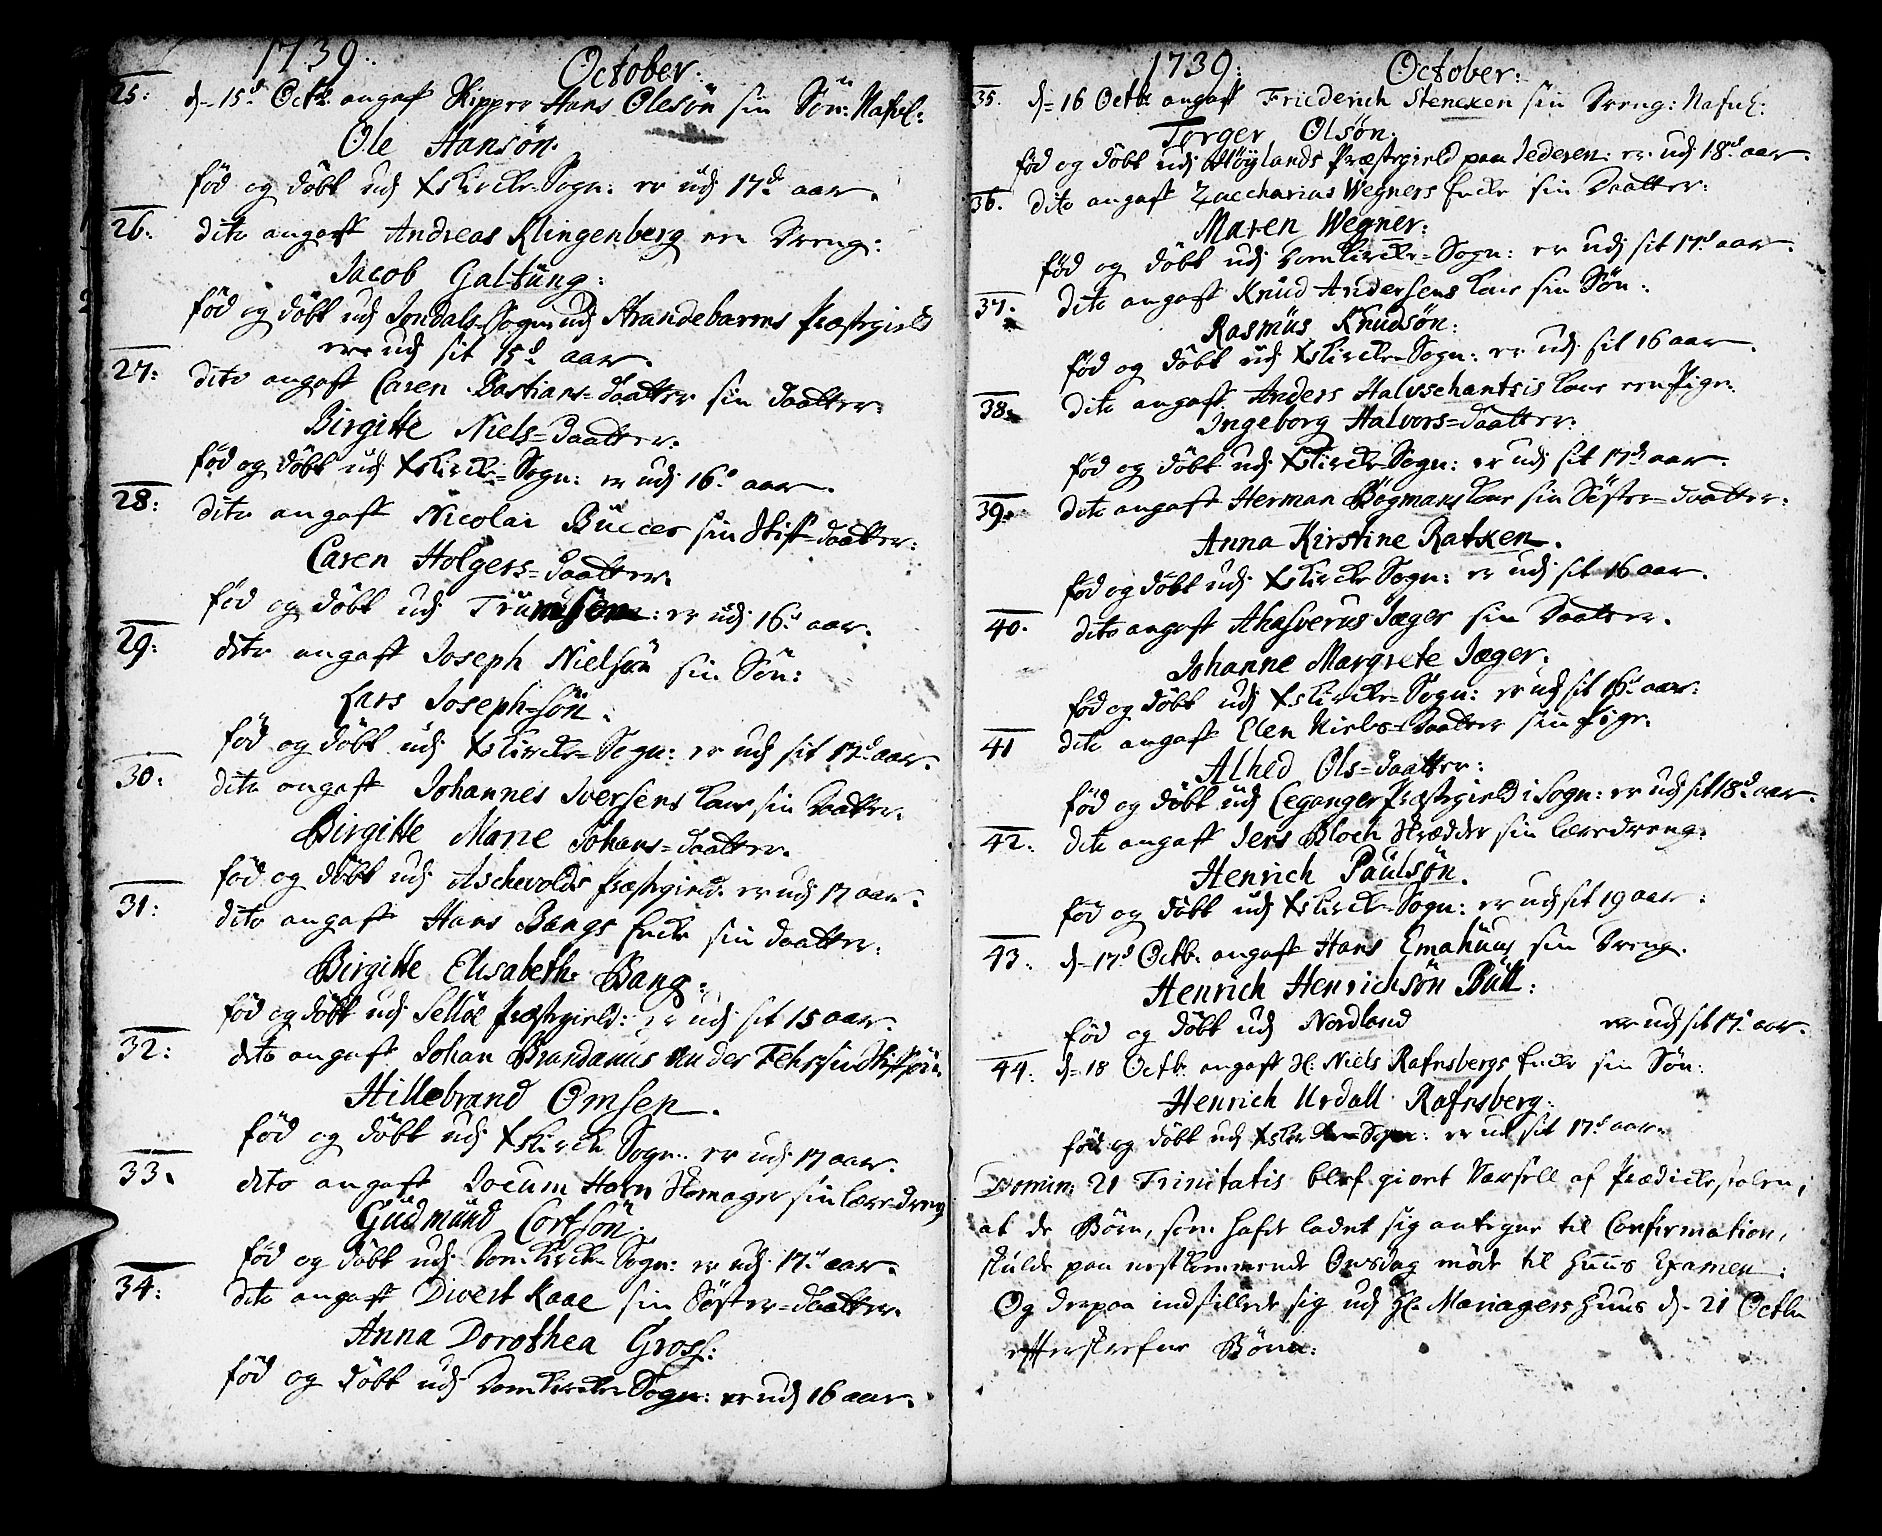 1739. October:
25: d. 15d. Octb: angaff Skipper Hans Olesøn sin Søn: Nafnl:
Ole Hansøn.
fød og døbt udj Xskircke-Sogn: er udj 17d aar.
26. dito angaff Andreas Klingenberg een Dreng:
Jacob Galtüng:
fød og døbt udj Jondals-Sogn udj Strandebarms Præstegield
er udj sit 15d. aar.
27: dito angaff Caren Bastians=daatter sin daatter:
Birgitte Niels=daatter:
fød og døbt udj Xskircke=Sogn: er udj 16d aar.
28: dito angaff Nicolai Bücces sin Stif=daatter:
Caren Holgers=daatter:
fød og døbt udj : er udj 16d aar.
29: dito angaff Joseph Nielsøn sin Søn:
Lars Joseph=søn.
fød og døbt udj Xskircke=Sogn: er udj sit 17d. aar.
30: dito angaff Johannes Iversens kone sin Daatter.
Birgitte Marie Johans=daatter.
fød og døbt udj Aschevolds Præstegield. er udj 17 aar.
31: dito angaff Hans Bangs Encke sin daatter:
Birgitte Elisabeth Bang:
fød og døbt udj Selløe Præstegield: er udj sit 15 aar.
32: dito angaff Johan Brandanus von der Fehr sin Stifsøn:
Hillebrand Omsen.
fød og døbt udj Xskircke Sogn: er udj 17 aar.
33. dito angaff Jocum Horn Skomager sin læredreng
Güdmünd Cortsøn.
fød og døbt udj Domkircke Sogn: er udj 17d aar.
34: dito angaff Divert Kaae sin Søster=daatter.
Anna Dorothea Gross:
fød og døbt udj Domkircke Sogn: er udj 16 aar.
1739: October:
35. d. 16 Octb: angaff Friederich Stencken sin Dreng: Nafnl:
Torger Olsøn.
fød og døbt udj Høylands Præstegield paa Jederen: er udj 18d. aar.
36. dito angaff Zaccharias Wegners Encke sin Daatter:
Maren Wegner:
fød og døbt udj Domkircke=Sogn: er udj sit 17d. aar.
37. dito angaff Knüd Andersens kone sin Søn:
Rasmüs Knüdsøn:
fød og døbt udj Xskircke=Sogn: er udj sit 16 aar.
38: dito angaff Anders Halvschantsis kone een Pige:
Ingeborg Halvors=daatter:
fød og døbt udj Xskircke Sogn: er udj sit 17d. aar.
39: dito angaff Herman Bøgmans kone sin Søster=daatter:
Anna Kirstine Ratken.
fød og døbt udj Xskircke Sogn: er udj sit 16 aar.
40. dito angaff Ahasverus Jæger sin Daatter.
Johanne Margrete Jæger.
fød og døbt udj Xskircke=Sogn: er udj sit 16d aar:
41 dito angaff Elen Niels=daatter sin Pige:
Alhed Ols=daatter:
fød og døbt udj Leganger Præstegield i Sogn: er udj sit 18d. aar.
42: dito angaff Jens Bloch Skrædder sin læredreng:
Henrich Paülsøn.
fød og døbt udj Xskircke=Sogn: er udj sit 19 aar:
43. d. 17d. Octb: angaff Hans Emahüus sin Dreng.
Henrich Henrichsøn Büll:
fød og døbt udj Nordland er udj sit 17d aar.
44: d. 18 Octb: angaff Hr. Niels Rafnsbergs Encke sin Søn:
Henrich Urdall Rafnsberg:
fød og døbt udj Xskircke=Sogn: er udj sit 17d aar.
Domin: 21 Trinitatis blef giort Varsell af Prædickestolen,
at de Børn, som hafde ladet sig antegne til Confirmation,
skulde paa nestkommende Onsdag møde til Huus Examen:
Og derpaa indstillede sig udj Hr. Mariagers Huus d. 21 Octb:
efterskrefne Børn: